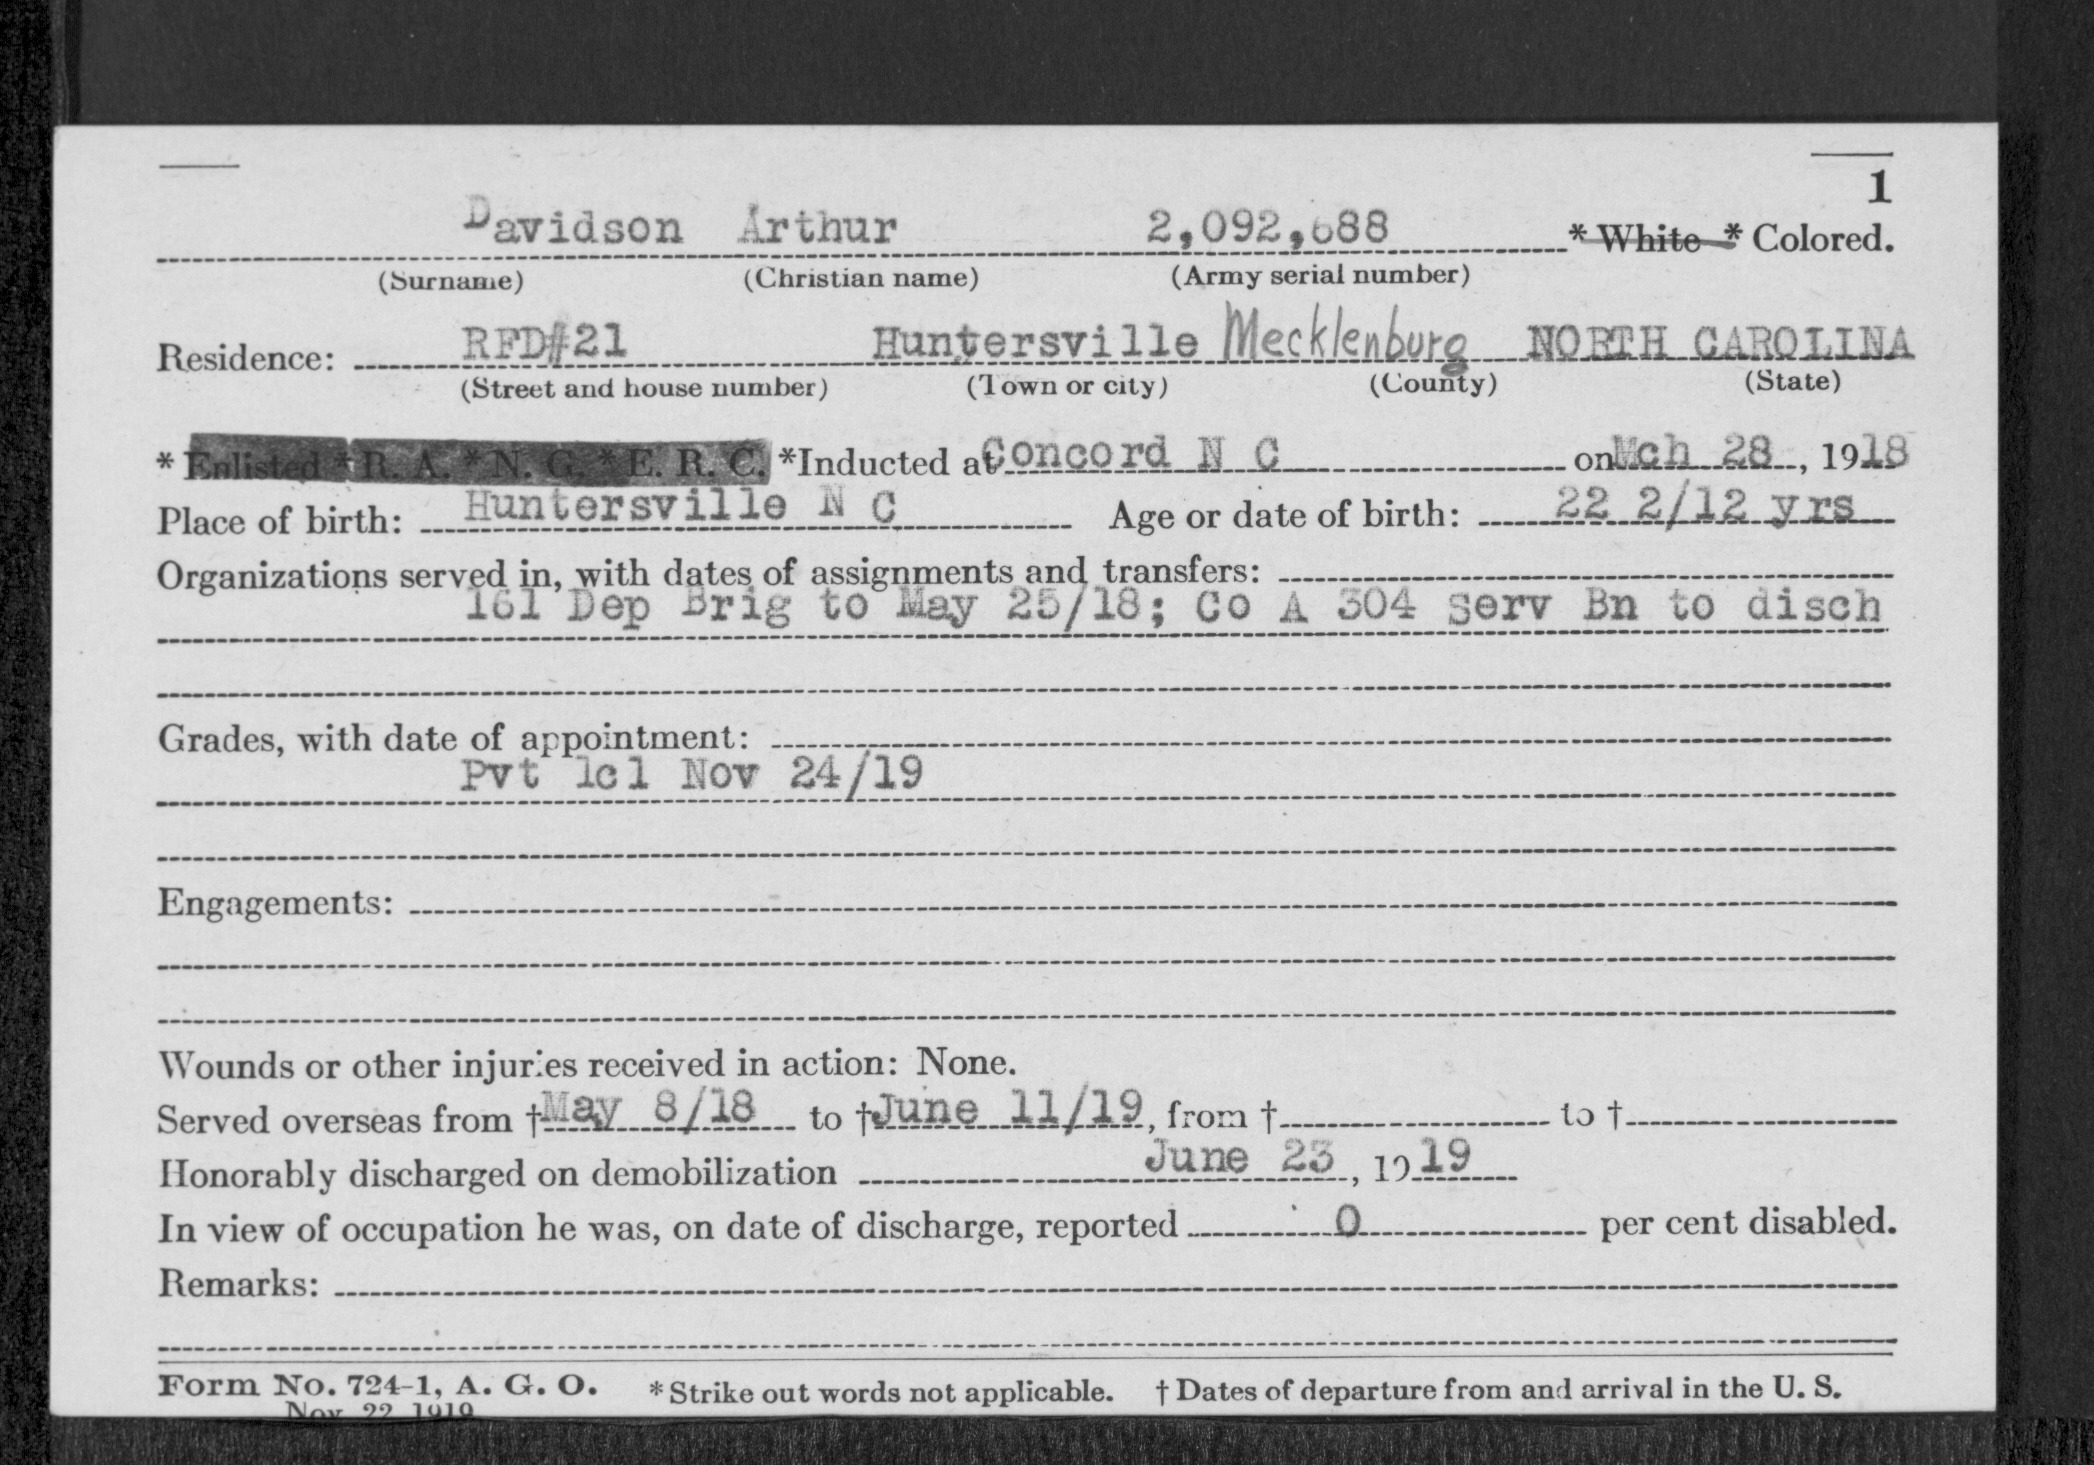 1
Davidson Arthur 2,092,688 * White * Colored.
(Surname) (Christian name) (Army serial number)
Residence: RFD#21 Huntersville Mecklenburg NORTH CAROLINA
(Street and house number) (Town or city) (County) (State)
* Enlisted * R. A. * N. G. * E. R. C. *Inducted at Concord N C on Mch 28, 1918
Place of birth: Huntersville N C Age or date of birth: 22 2/12 yrs
Organizations served in, with dates of assignments and transfers:
161 Dep Brig to May 25/18; Co A 304 Serv Bn to disch
Grades, with date of appointment:
Pvt 1cl Nov 24/19
Engagements:
Wounds or other injuries received in action: None.
Served overseas from †May 8/18 to †June 11/19, from † to †
Honorably discharged on demobilization June 23, 1919
In view of occupation he was, on date of discharge, reported 0 per cent disabled.
Remarks:
Form No. 724-1, A. G. O. *Strike out words not applicable. † Dates of departure from and arrival in the U. S.
Nov 22 1919